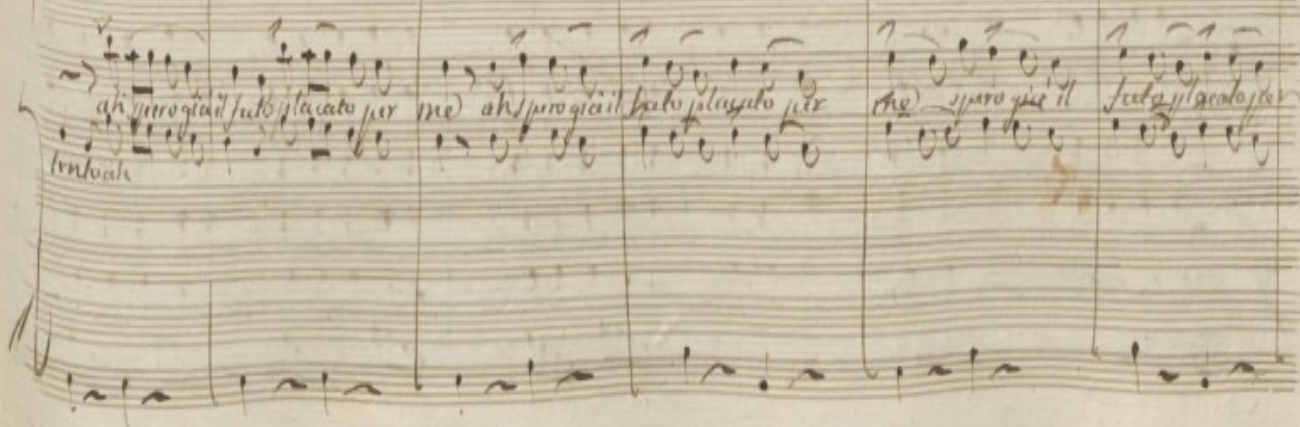 ah spero già il fato placato per me ah spero già il fato placato per me spero già il fato placato per